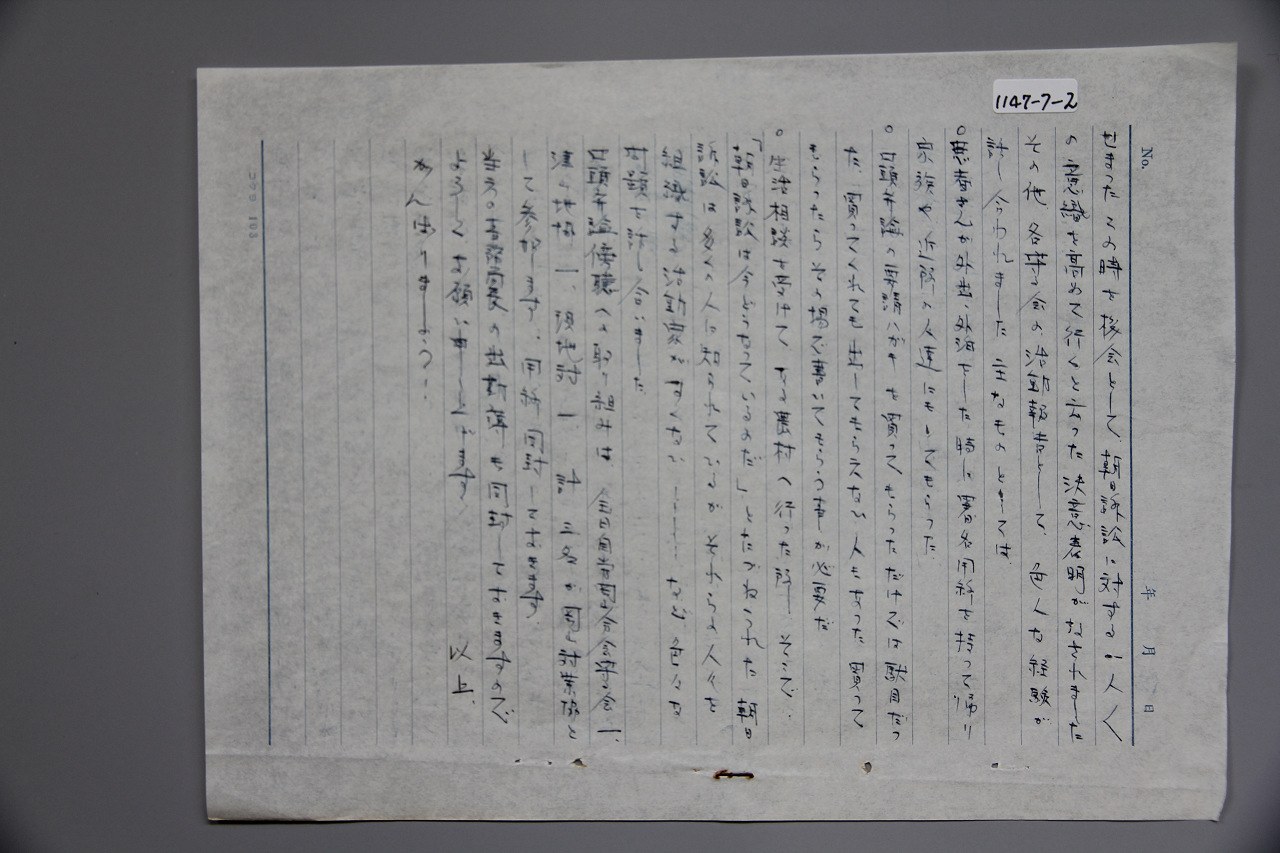 1147-7-2
No.
年 月 日
せまったこの時を機会として、朝日訴訟に対する一人〱
の意識を高めて行くと云った決意表明がなされました
その他、各守る会の活動報告として、色々な経験が
話し合われました 主なものとしては
○患者さんが外出、外泊をした時に署名用紙を持って帰り
家族や近所の人達にもしてもらった
○口頭弁論の要請ハガキを買ってもらっただけでは駄目だっ
た 買ってくれても出してもらえない人もあった 買って
もらったらその場で書いてもらう事が必要だ
○生活相談を受けて、ある農村へ行った所、そこで、
「朝日訴訟は今どうなっているのだ」とたづねられた 朝日
訴訟は多くの人に知られているが それらの人々を
組織する活動家がすくない ……… など 色々な
問題を話し合いました
口頭弁論傍聴への取り組みは、全日自労岡山分会守る会 一、
津山地協 一、現地対 一、計 三名が岡山対策協と
して参加します、用紙同封しておきます、
当え○書籍の出版 も同封しておきますので
よろしくお願い申し上げます
以上、
がんばりましょう！
コクヨ 103